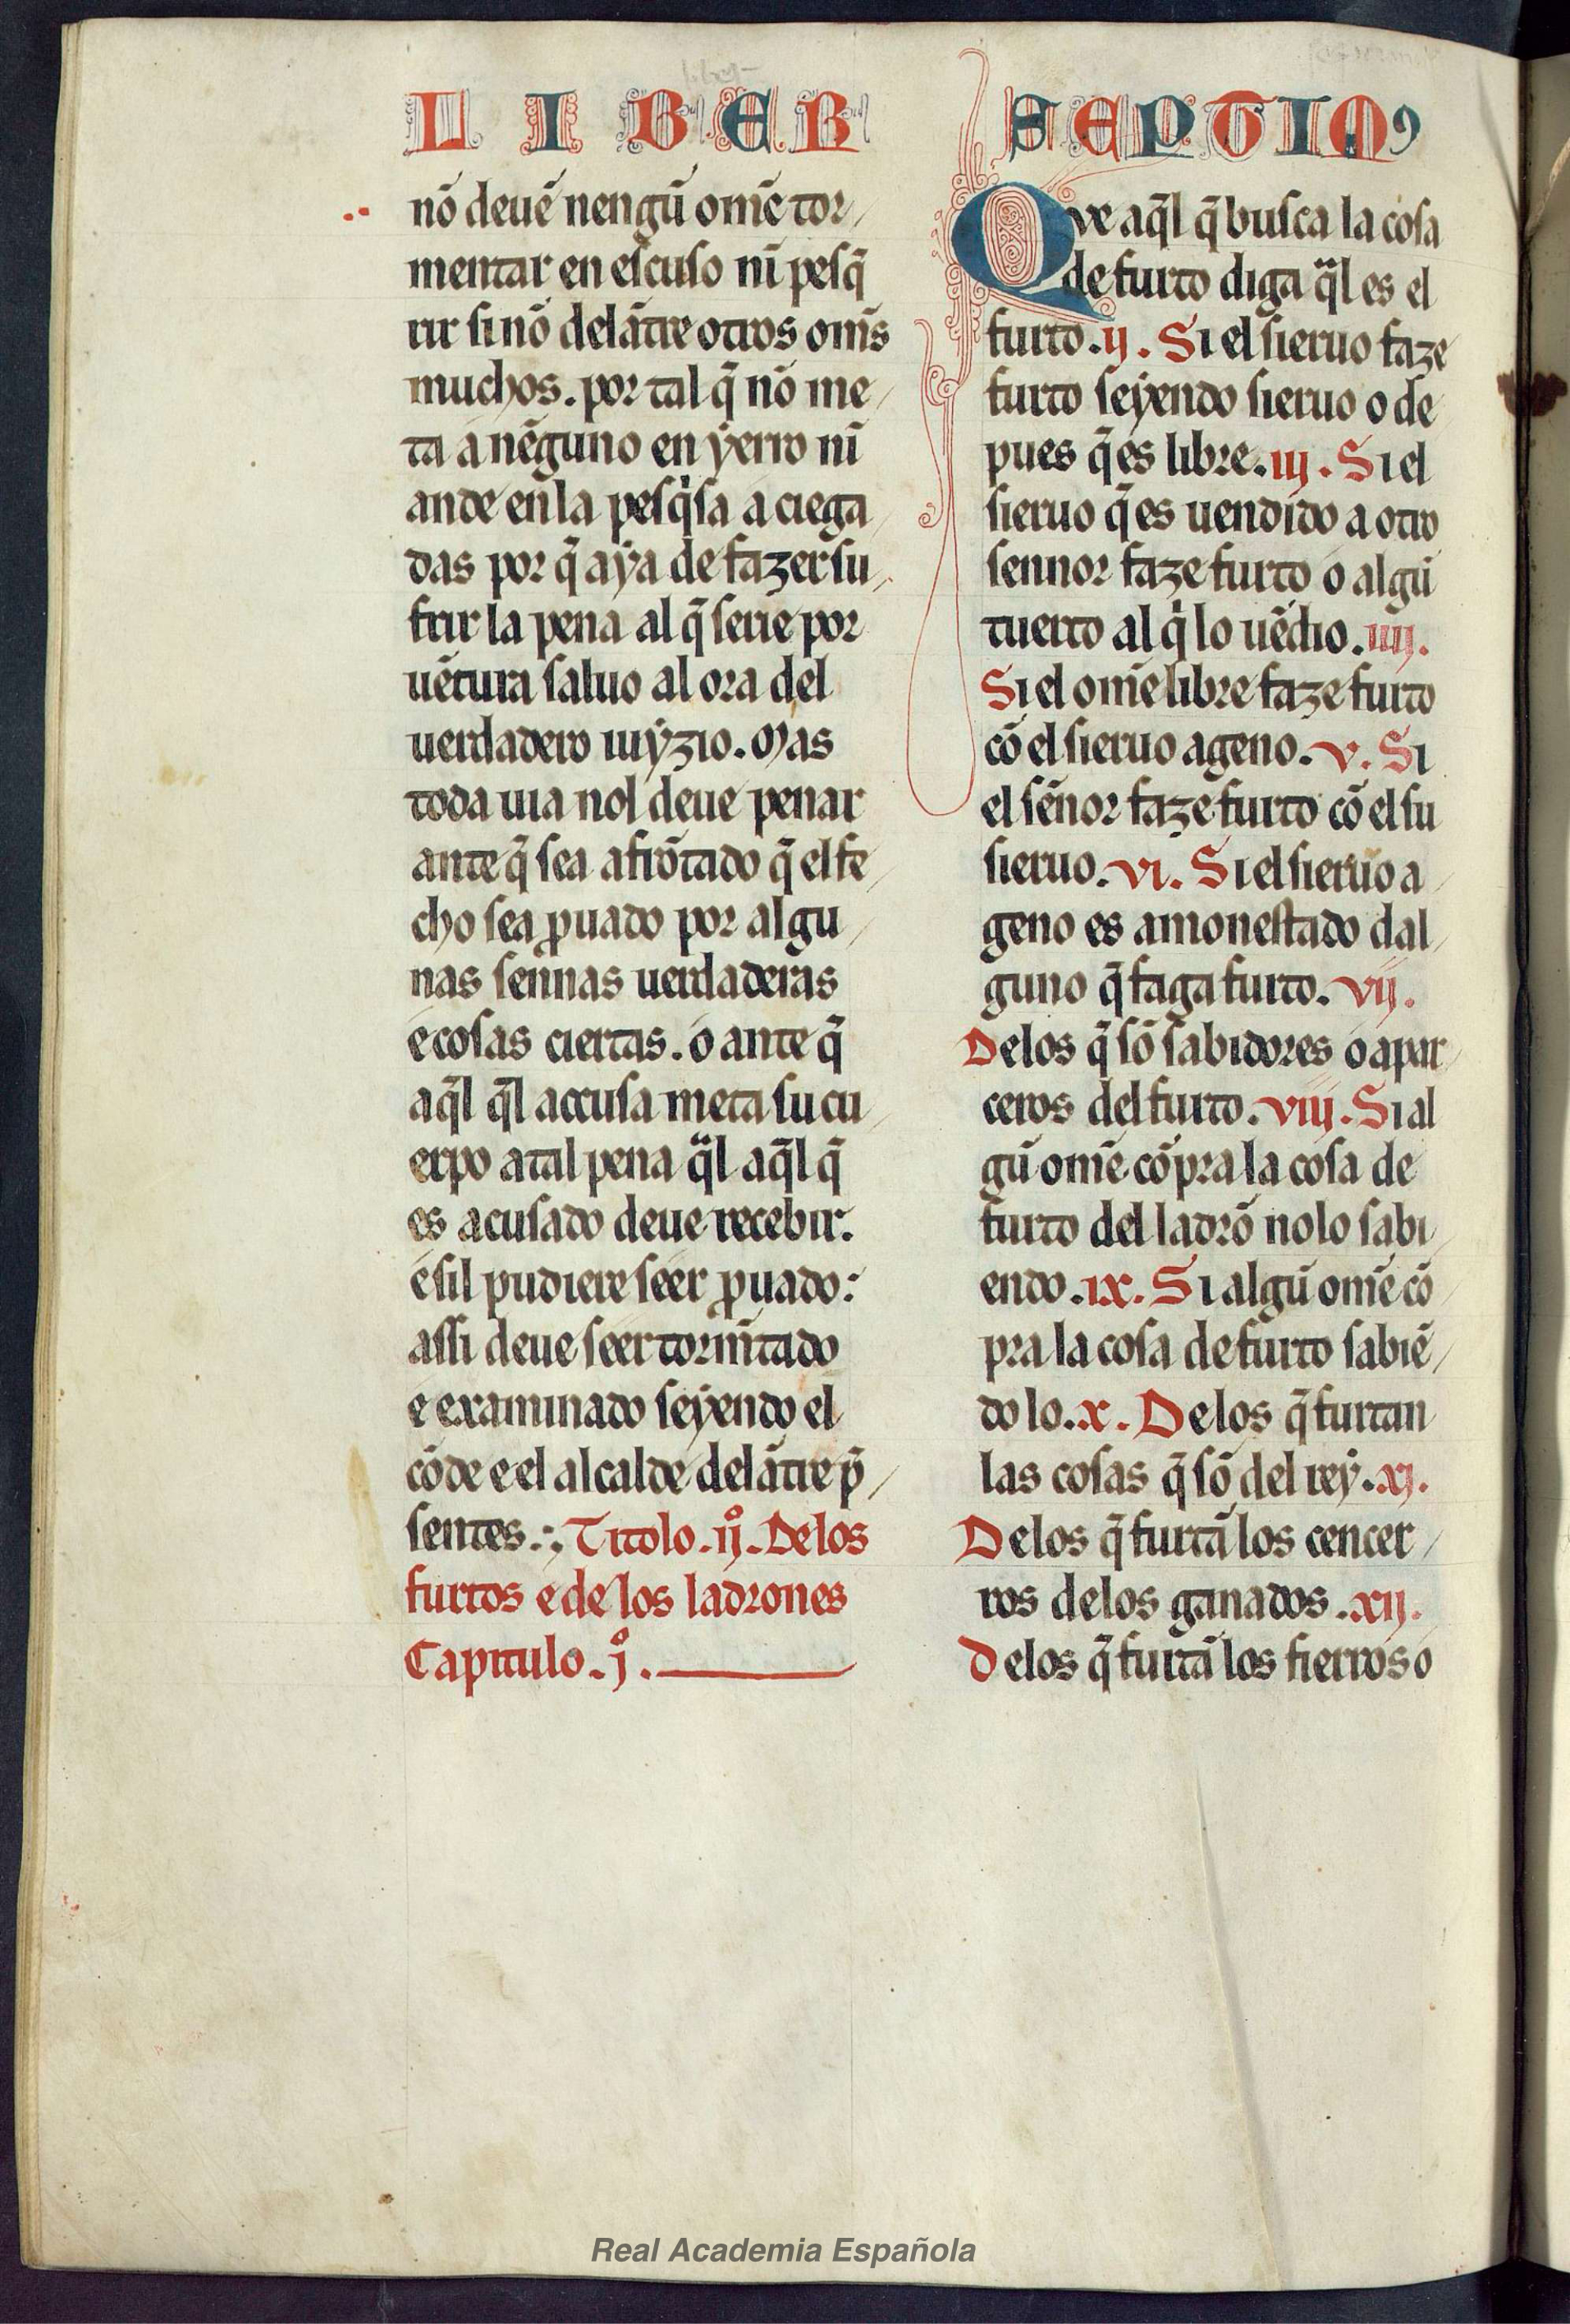 LIBER SEPTIMꝰ
nõ deuẽ nengũ om̃e tor/
mentar en eſcuſo nĩ peſq̃
rir ſi nõ delãtre otros om̃s
muchos. por tal q̃ nõ me/
ta a nẽguno en ẏerro nĩ
ande en la peſq̇ſa a ciega
das por q̃ aẏa de fazer ſu/
frir la pena al q̃ ſerie por
uẽtura ſaluo al ora del
uerdadero iuẏzio. Mas
toda uia nol deue penar
ante q̃ ſea afrõtado q̃ el fe/
cho ſea ꝓuado por algu/
nas ſennas uerdaderas
e coſas ciertas. o ante q̃
aq̃l q̃l accuſa meta ſu cu/
erpo a tal pena q̃l aq̃l q̃
es acuſado deue recebir.
e ſil pudiere ſeer ꝓuado:
aſſi deue ſeer torm̃tado
e examinado ſeẏendo el
cõde e el alcalde delãtre p̃/
ſentes.:; Titolo .ijº. De los
furtos e de los ladrones
Capitulo .jº.
Que aq̃l q̃ buſca la coſa
de furto diga q̃l es el
furto .ij. Si el ſieruo faze
furto ſeẏendo ſieruo o de
pues q̃ es libre. iij. Si el
ſieruo q̃ es uendido a otro
ſennor faze furto o algũ
tuerto al q̇ lo uẽdio .iiij.
Si el om̃e libre faze furto
cõ el ſieruo ageno. v. Si
el ſẽnor faze furto cõ el ſu
ſieruo. vi. Si el ſieruo a/
geno es amoneſtado dal/
guno q̃ faga furto. vij.
De los q̃ ſõ ſabidores o apar/
ceros del furto. viij. Si al
gũ om̃e cõpra la coſa de
furto del ladrõ no lo ſabi/
endo .ix. Si algũ om̃e cõ/
pra la coſa de furto ſabiẽ/
do lo. x. De los q̃ furtan
las coſas q̃ ſõ del reẏ. xj.
De los q̃ furtã los cencer/
ros de los ganados. xij.
De los q̃ furtã los fierros o
Real Academia Española